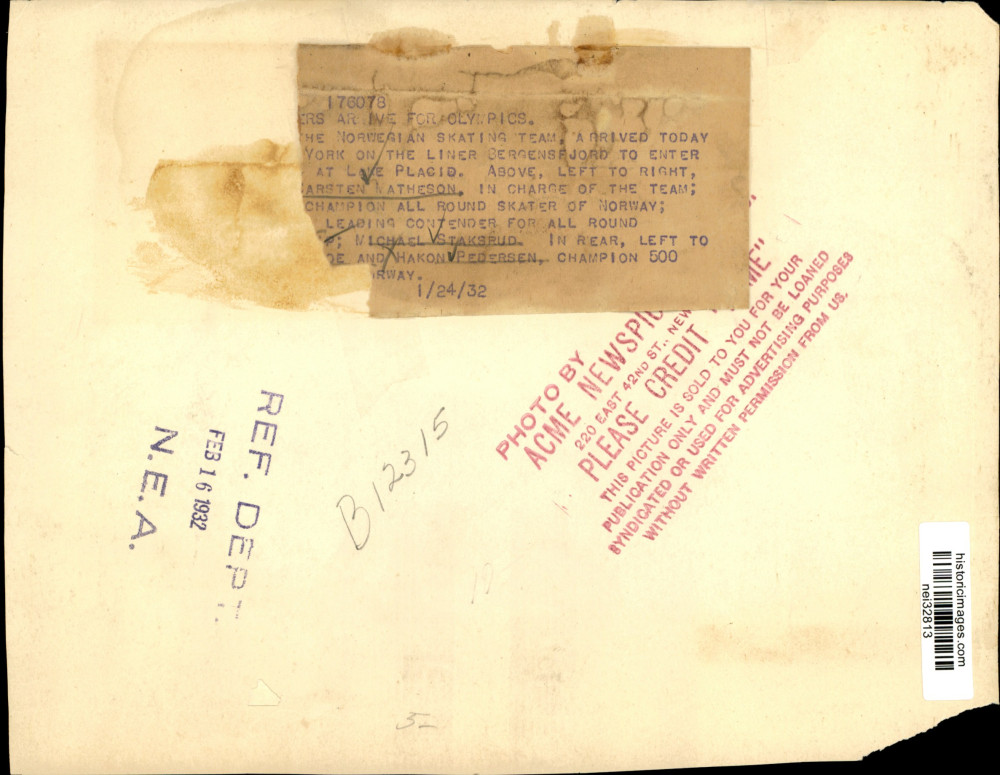 176078
ERS ARRIVE FOR OLYMPICS.
HE NORWEGIAN SKATING TEAM, ARRIVED TODAY
YORK ON THE LINER BERGENSFJORD TO ENTER
AT LAKE PLACID. ABOVE, LEFT TO RIGHT,
ARSTEN MATHESON, IN CHARGE OF THE TEAM;
CHAMPION ALL ROUND SKATER OF NORWAY;
LEADING CONTENDER FOR ALL ROUND
P; MICHAEL STAKSRUD. IN REAR, LEFT TO
OE AND HAKON PEDERSEN, CHAMPION 500
RWAY.
1/24/32
PHOTO BY
ACME NEWSPIC
220 EAST 42ND ST., NEW
PLEASE CREDIT "ACME"
THIS PICTURE IS SOLD TO YOU FOR YOUR
PUBLICATION ONLY AND MUST NOT BE LOANED
SYNDICATED OR USED FOR ADVERTISING PURPOSES
WITHOUT WRITTEN PERMISSION FROM US.
REF. DEPT.
FEB 16 1932
N.E.A.
B12315
5-
historicimages.com
nei32813